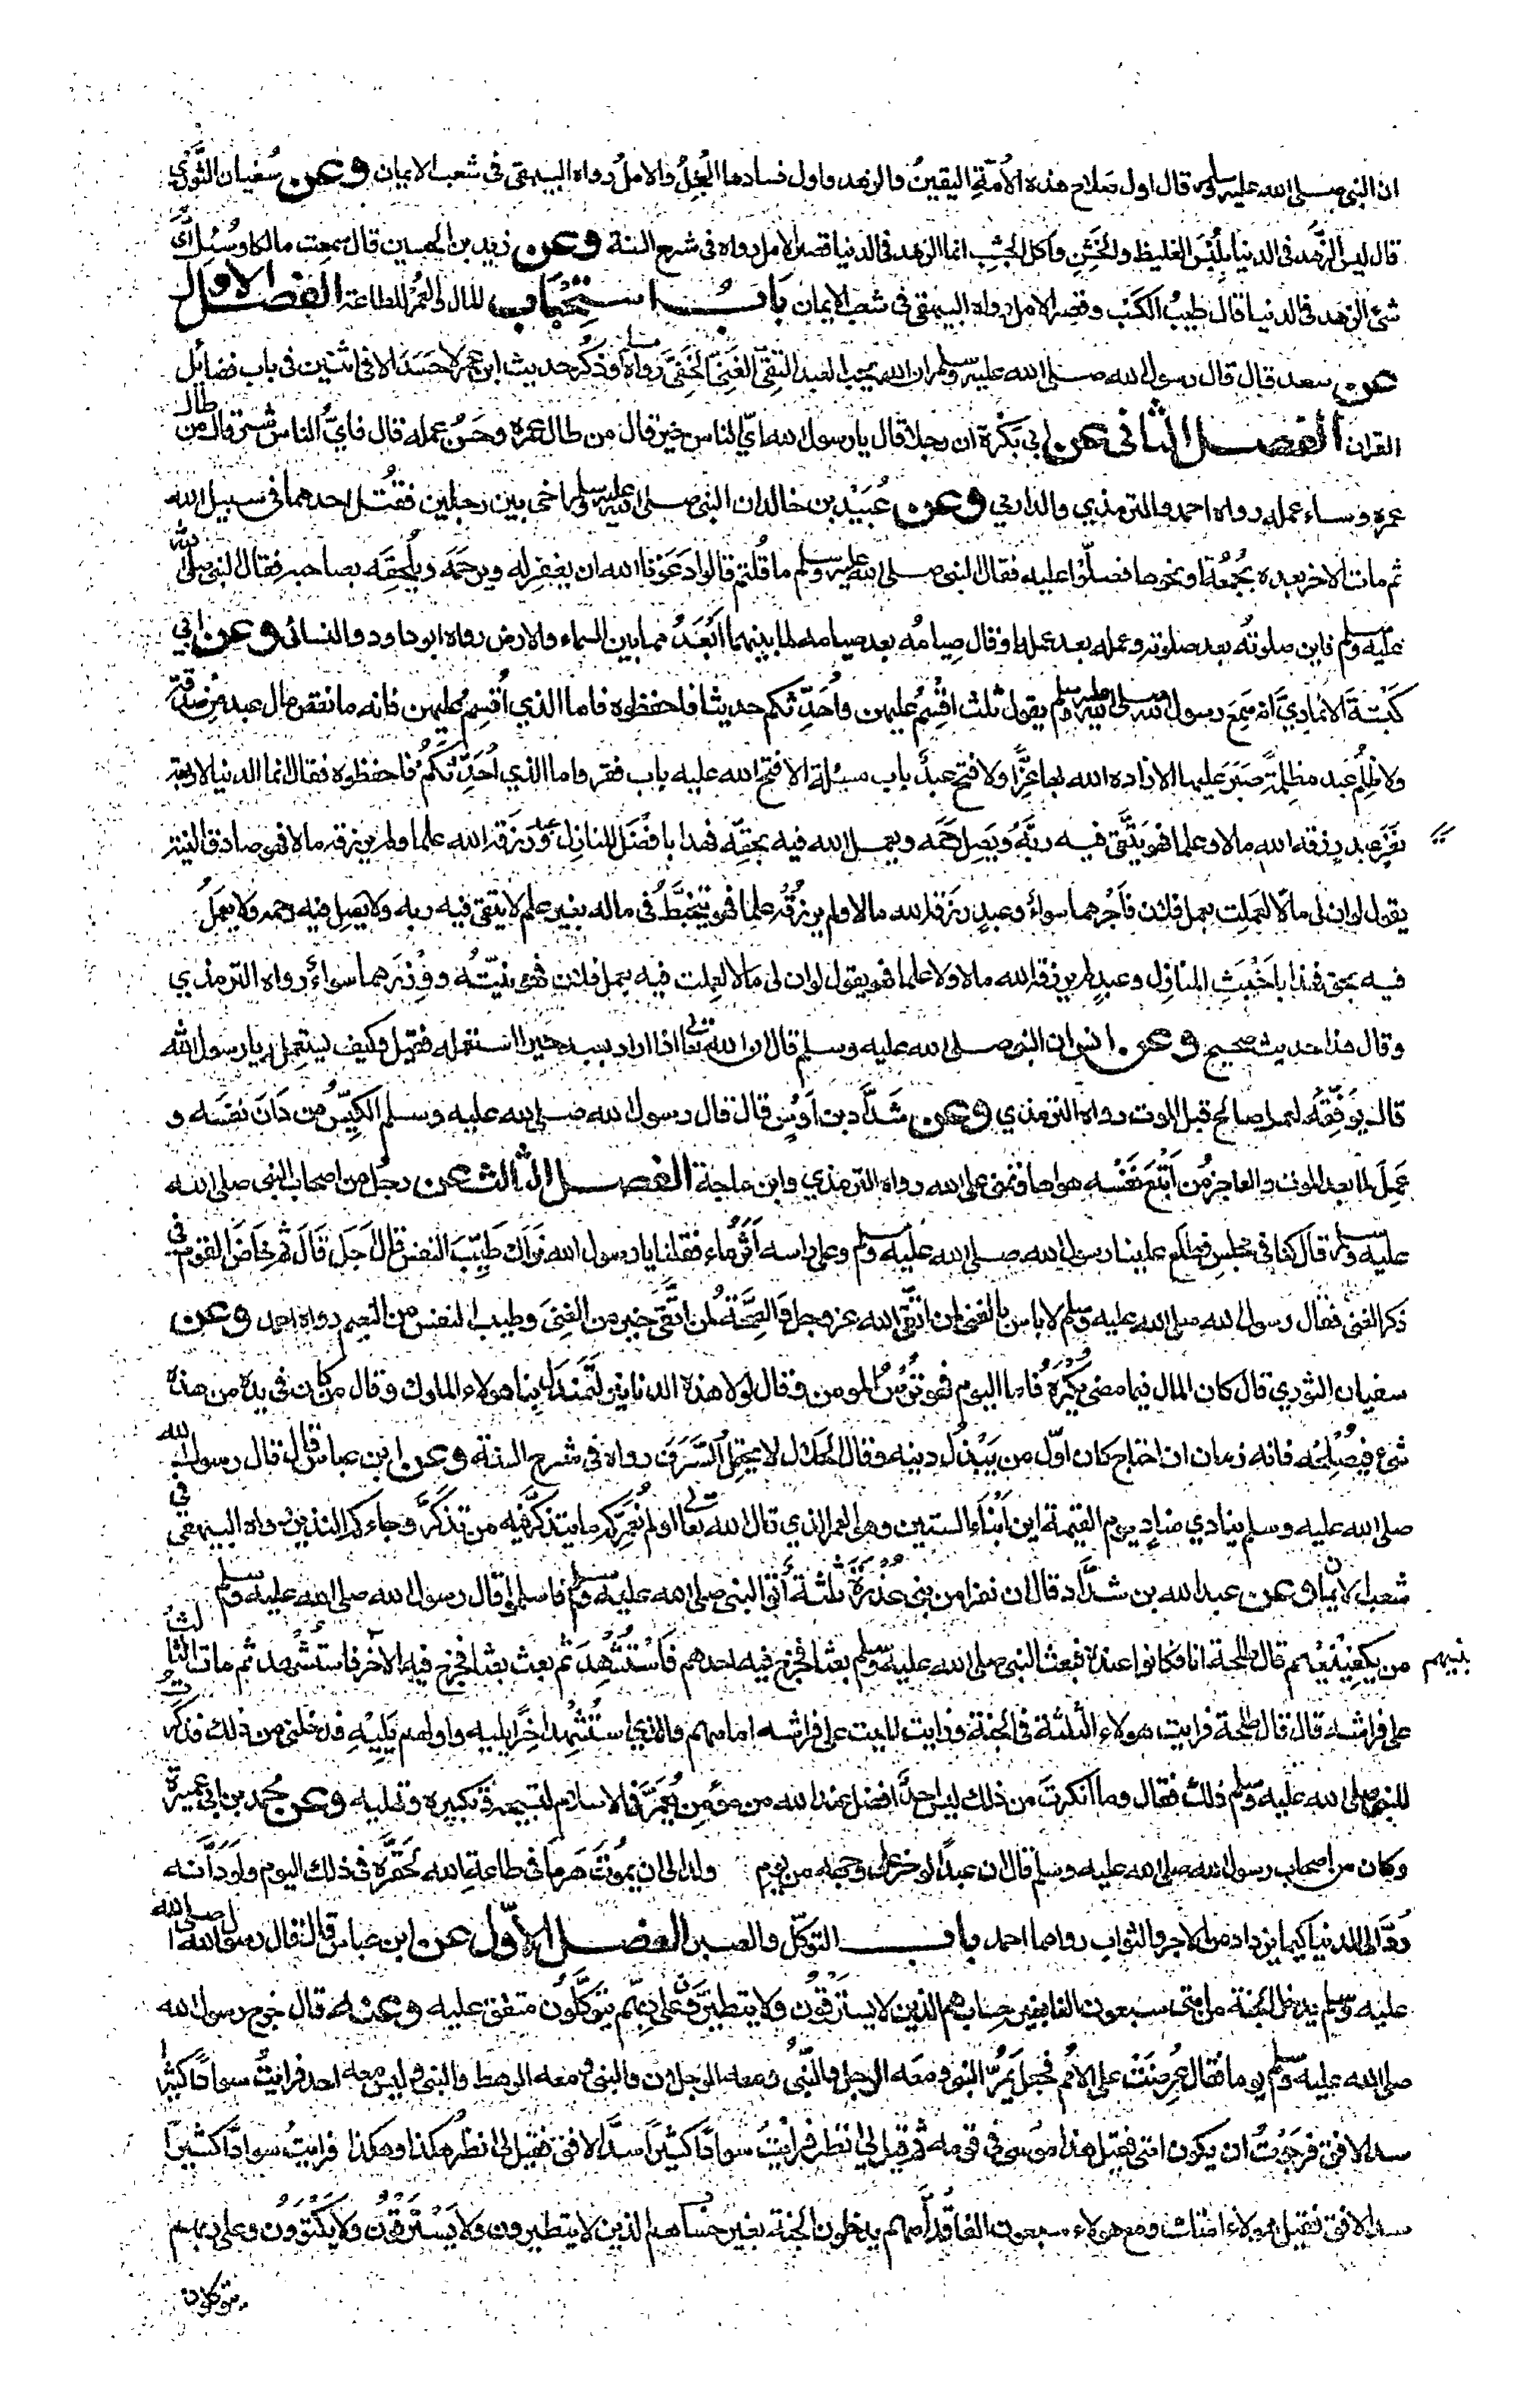 ان النبي صلى الله عليه وسلم قال اول صلاح هذه الأمّة اليقينُ والزهد واول فسادها البُخلُ والاملُ رواه البيهقي في شعب الايمان وعن سُفيان الثَّوري
قال ليس الزُّهد في الدنيا بلُبْس الغليظ والخَشِن وأكل الجَشِب انما الزهد في الدنيا قصر الامل رواه في شرح السنة وعن زيد بن الحسين قال سمعت مالكا وسُئِل أيّ
شئ الزهد في الدنيا قال طيبُ الكَسْب وقصر الامل رواه البيهقي في شعب الايمان بابُ استحباب المال والعمر للطاعة الفصل الاول
عن سعد قال قال رسول الله صلى الله عليه وسلم ان الله يحب العبد التقيّ الغنيّ الخفيّ رواه مسلم وذكر حديث ابن عمر لا حَسَدَ الا في اثنين في باب فضائل
القران الفصل الثاني عن ابي بَكْرة ان رجلا قال يا رسول الله ايّ الناس خير قال من طال عمره وحَسُن عمله قال فايُّ الناس شر قال من طال
عمره وساء عمله رواه احمد والترمذي والدارمي وعن عُبَيْد بن خالد ان النبي صلى الله عليه وسلم اخى بين رجلين فقُتل احدهما في سبيل الله
ثم مات الاخر بعده بجُمُعة او نحوها فصلّوا عليه فقال النبي صلى الله عليه وسلم ما قُلتم قالوا دَعَوْنا الله ان يغفر له ويرحمَه ويُلحِقَه بصاحبه فقال النبي صلى الله
عليه وسلم فاين صلوتُه بعد صلوته وعمله بعد عمله او قال صِيامُه بعد صيامه لما بينهما اَبْعَدُ مما بين السماء والارض رواه ابو داود والنسائى وعن ابي
كَبْشَة الانماريّ انه سمِعَ رسول الله صلى الله عليه وسلم يقول ثلث اقْسِمُ عليهن وأُحَدِّثكم حديثا فاحفظوه فاما الذي اُقسِمُ عليهن فانه ما نقص مال عبد من صدقة
ولا ظُلِمُ عبد مظلِمةً صَبَرَ عليها الا زاده الله بها عِزًّا ولا فتح عبدٌ باب مسئلة الا فتح الله عليه باب فقر واما الذي اُحَدِّثُكمُ فاحفظوه فقال انما الدنيا لاربعة
نَفَرٍ عبد رزقه الله مالا وعلما فهو يتَّقي فيه ربَّهُ ويَصِل رَحِمَه ويعمل لله فيه بحقِّه فهذا بافْضَل المنازل وعبد رَزَقه الله علما ولم يرزقه مالا فهو صادق النية
يقول لو ان لى مالًا لعَمِلت بعمل فلان فَاَجْرهما سواءٌ وعبدٍ رَزقه الله مالا ولم يرزُقْه علما فهو يتخبَّطُ في ماله بغير علم لا يتقي فيه ربه ولا يصِل فيه رحمه ولا يعملُ
فيه بحق فهذا باَخْبَثِ المنازِل وعبدٍ لم يرزقه الله مالا ولا علما فهو يقول لو ان لى مالا لعملت فيه بعمل فلان فهو نيّتُه ووِزرَهما سواءٌ رواه الترمذي
وقال هذا حديث صحيح وعن انس ان النبى صلى الله عليه وسلم قال ان الله تعالى اذا اراد بعبد خيرا استعمله فقيل وكيف يستعمله يا رسول الله
قال يوَفِّقُه لعمل صالح قبل الموت رواه الترمذي وعن شَدَّاد بن اَوْسٍ قال قال رسول الله صلى الله عليه وسلم الكَيِّسُ من دَانَ نفسَه و
عَمِلَ لما بعد الموت والعاجز من اَتْبَعَ نَفْسَه هواها وتمنى على الله رواه الترمذي وابن ماجة الفصل الثالث عن رجل من اصحاب النبي صلى الله
عليه وسلم قال كنا في مجلس فطلع علينا رسول الله صلى الله عليه وسلم وعلى راسه اَثَرُ ماء فقلنا يا رسول الله نَراك طيّبَ النفس قال اَجَلْ قَالَ ثم خَاضَ القوم في
ذكر الغنى فقال رسول الله صلى الله عليه وسلم لا باس بالغنى لمن اتَّقى الله عز وجل والصِّحَّة لمن اتَّقى خير من الغِنى وطيب النفس من النعيم رواه احمد وعن
سفيان الثوري قال كان المال فيما مضى يُكرَهُ فاما اليوم فهو تُرْسُ المومن وقال لولا هذه الدنانير لَتَمَنْدَلَ بنا هولاء الملوك وقال من كان في يده من هذه
شئ فيُصْلِحْه فانه زمان ان احتاج كان اوّل من يَبْذُل دينه وقال الحلال لا يحتمل السَّرَف رواه في شرح السنة وعن ابن عباس قال قال رسول الله
صلى الله عليه وسلم ينادي منادٍ يوم القيمة اين اَبْناء الستين وهو العمر الذي قال الله تعالى او لم نُعَمِّركم ما يتذكر فيه من تذكَّر وجاءكم النذير رواه البيهقي في
شعب الايمان وعن عبد الله بن شدَّاد قال ان نفرا من بني عُذْرَة ثلثة اَتَوا النبى صلى الله عليه وسلم فاسلموا قال رسول الله صلى الله عليه وسلم
من يَكْفِيْنِيْهم قال طلحة انا فكانوا عنده فبعث النبى صلى الله عليه وسلم بعثا فخرج فيه احدهم فَاسْتُشْهِدَ ثم بعث بعثا فخرج فيه الاخر فاستُشهد ثم مات الثالث
على فراشه قال قال طلحة فرايت هولاء الثلثة في الجنة ورايت الميت على فراشه امامهم والذي استُشْهِد اخِرًا يليه واولهم يَلِيْهِ فدخلني من ذلك فذكرتُ
للنبي صلى الله عليه وسلم ذلك فقال وما انكرتَ من ذلك ليس احدٌ افضل عند الله من مؤمنٍ يُعَمَّرُ في الاسلام لتسبيحه وتكبيره وتهليله وعن محمد بن ابي عميرة
وكان من اصحاب رسول الله صلى الله عليه وسلم قال ان عبدًا لو خرعلى وجهه من يوم ولد الى ان يموتَ هَرِما في طاعة الله لحَقَّره في ذلك اليوم ولَوَدَّ اَنه
رُدَّ الى الدنيا كيما يزداد من الاجر والثواب رواهما احمد باب التوكّل والصبر الفصل الاوّل عن ابن عباس قال قال رسول الله صلى الله
عليه وسلم يدخل الجنة من امتى سبعون الفا بغير حساب هم الذين لا يسترقُون ولا يتطيرون وعلى ربّهم يتوَكَّلُون متفق عليه وعنه قال خرج رسول الله
صلى الله عليه وسلم يوما فقال عُرِضَتْ علي الاُمَم فجعل يَمُرّ النبىّ ومَعَه الرجل والنّبىّ ومعه الرَجلان والنبىّ ومعه الرهط والنبىّ وليس معه احد فرايتُ سوادًا كثيرًا
سد الافق فرجَوْتُ ان يكون امتى فقيل هذا موسى في قومه ثم قيل لي انظر فرايْتُ سوادًا كثيرًا سدَّ الافق فقيل لى انظُر هكذا وهكذا فرايتُ سوادًا كثيرًا
سد الافق فقيل هولاء امتك ومع هولاء سبعون الفا قُدَّامَهم يدخلون الجنة بغير حساب هم الذين لا يتطيرون ولَا يَسْتَرقُونَ ولا يَكتَوُون وعلى ربهم
يتوكلون